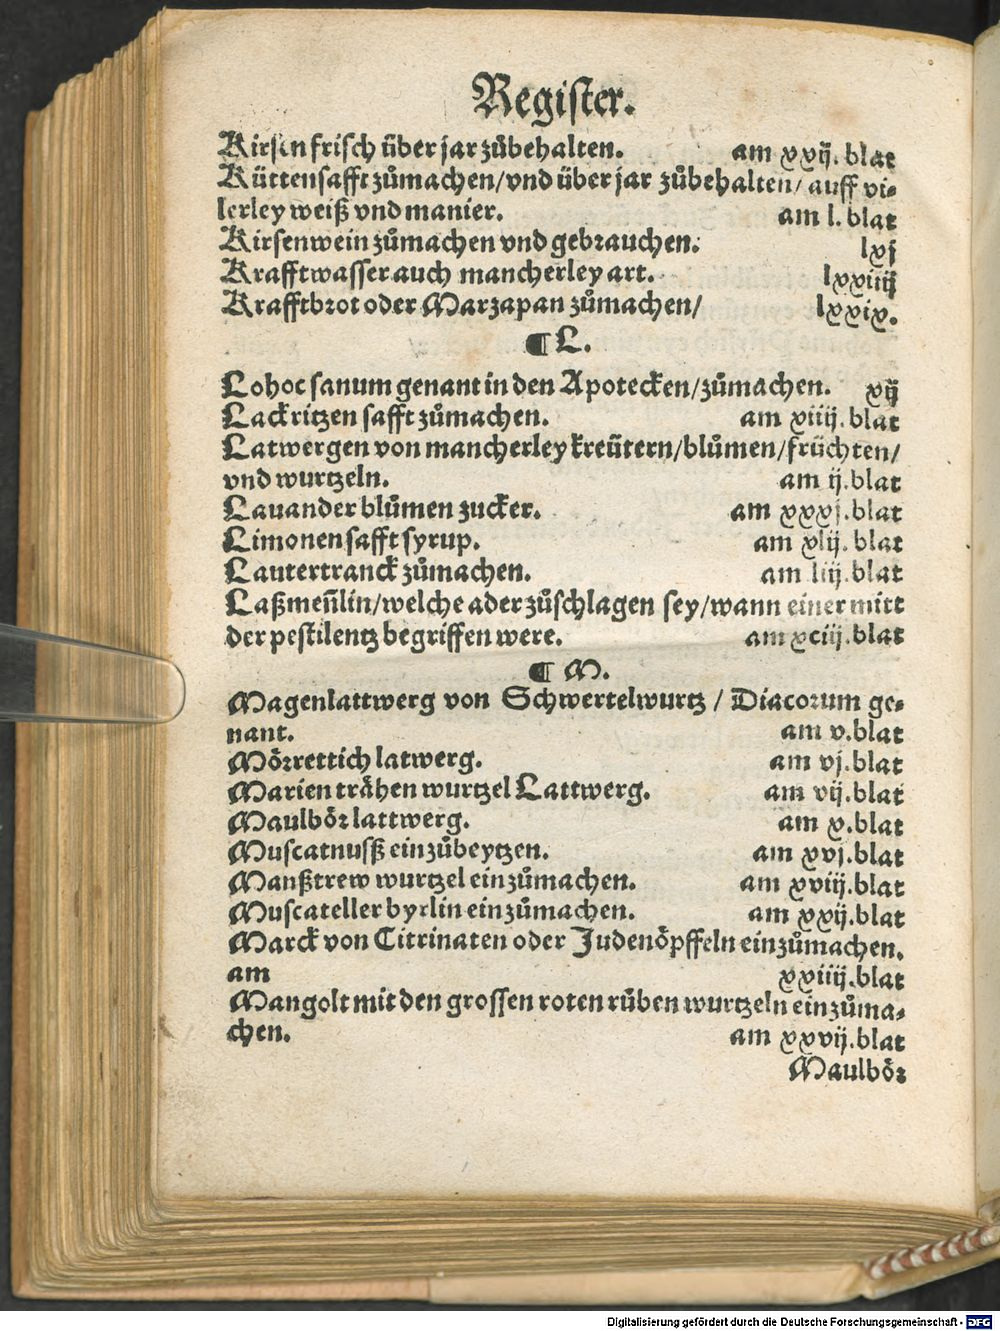 Register.
Kirsen frisch über jar zůbehalten. am xxij. blat
Küttensafft zůmachen/vnd über jar zůbehalten/auff vi⸗
lerley weiß vnd manier. am l. blat
Kirsenwein zůmachen vnd gebrauchen. lxj
Krafftwasser auch mancherley art. lxxiiij
Krafftbrot oder Marzapan zůmachen/ lxxix.
¶ L.
Lohoc sanum genant in den Apotecken/zůmachen. xij
Lackritzen safft zůmachen. am xiiij. blat
Latwergen von mancherley kreütern/blůmen/früchten/
vnd wurtzeln. am ij. blat
Lauander blůmen zucker. am xxxj. blat
Limonensafft syrup. am xlij. blat
Lautertranck zůmachen. am liij. blat
Laßmeñlin/welche ader zůschlagen sey/wann einer mitt
der pestilentz begriffen were. am xciij. blat
¶ M.
Magenlattwerg von Schwertelwurtz / Diacorum ge⸗
nant. am v. blat
Mörrettich latwerg. am vj. blat
Marien trähen wurtzel Lattwerg. am vij. blat
Maulbör lattwerg. am x. blat
Muscatnusß einzůbeytzen. am xvj. blat
Manßtrew wurtzel einzůmachen. am xviij. blat
Muscateller byrlin einzůmachen. am xxij. blat
Marck von Citrinaten oder Judenöpffeln einzůmachen.
am xxiiij. blat
Mangolt mit den grossen roten rüben wurtzeln einzůma⸗
chen. am xxvij. blat
Maulbör
Digitalisierung gefördert durch die Deutsche Forschungsgemeinschaft - DFG